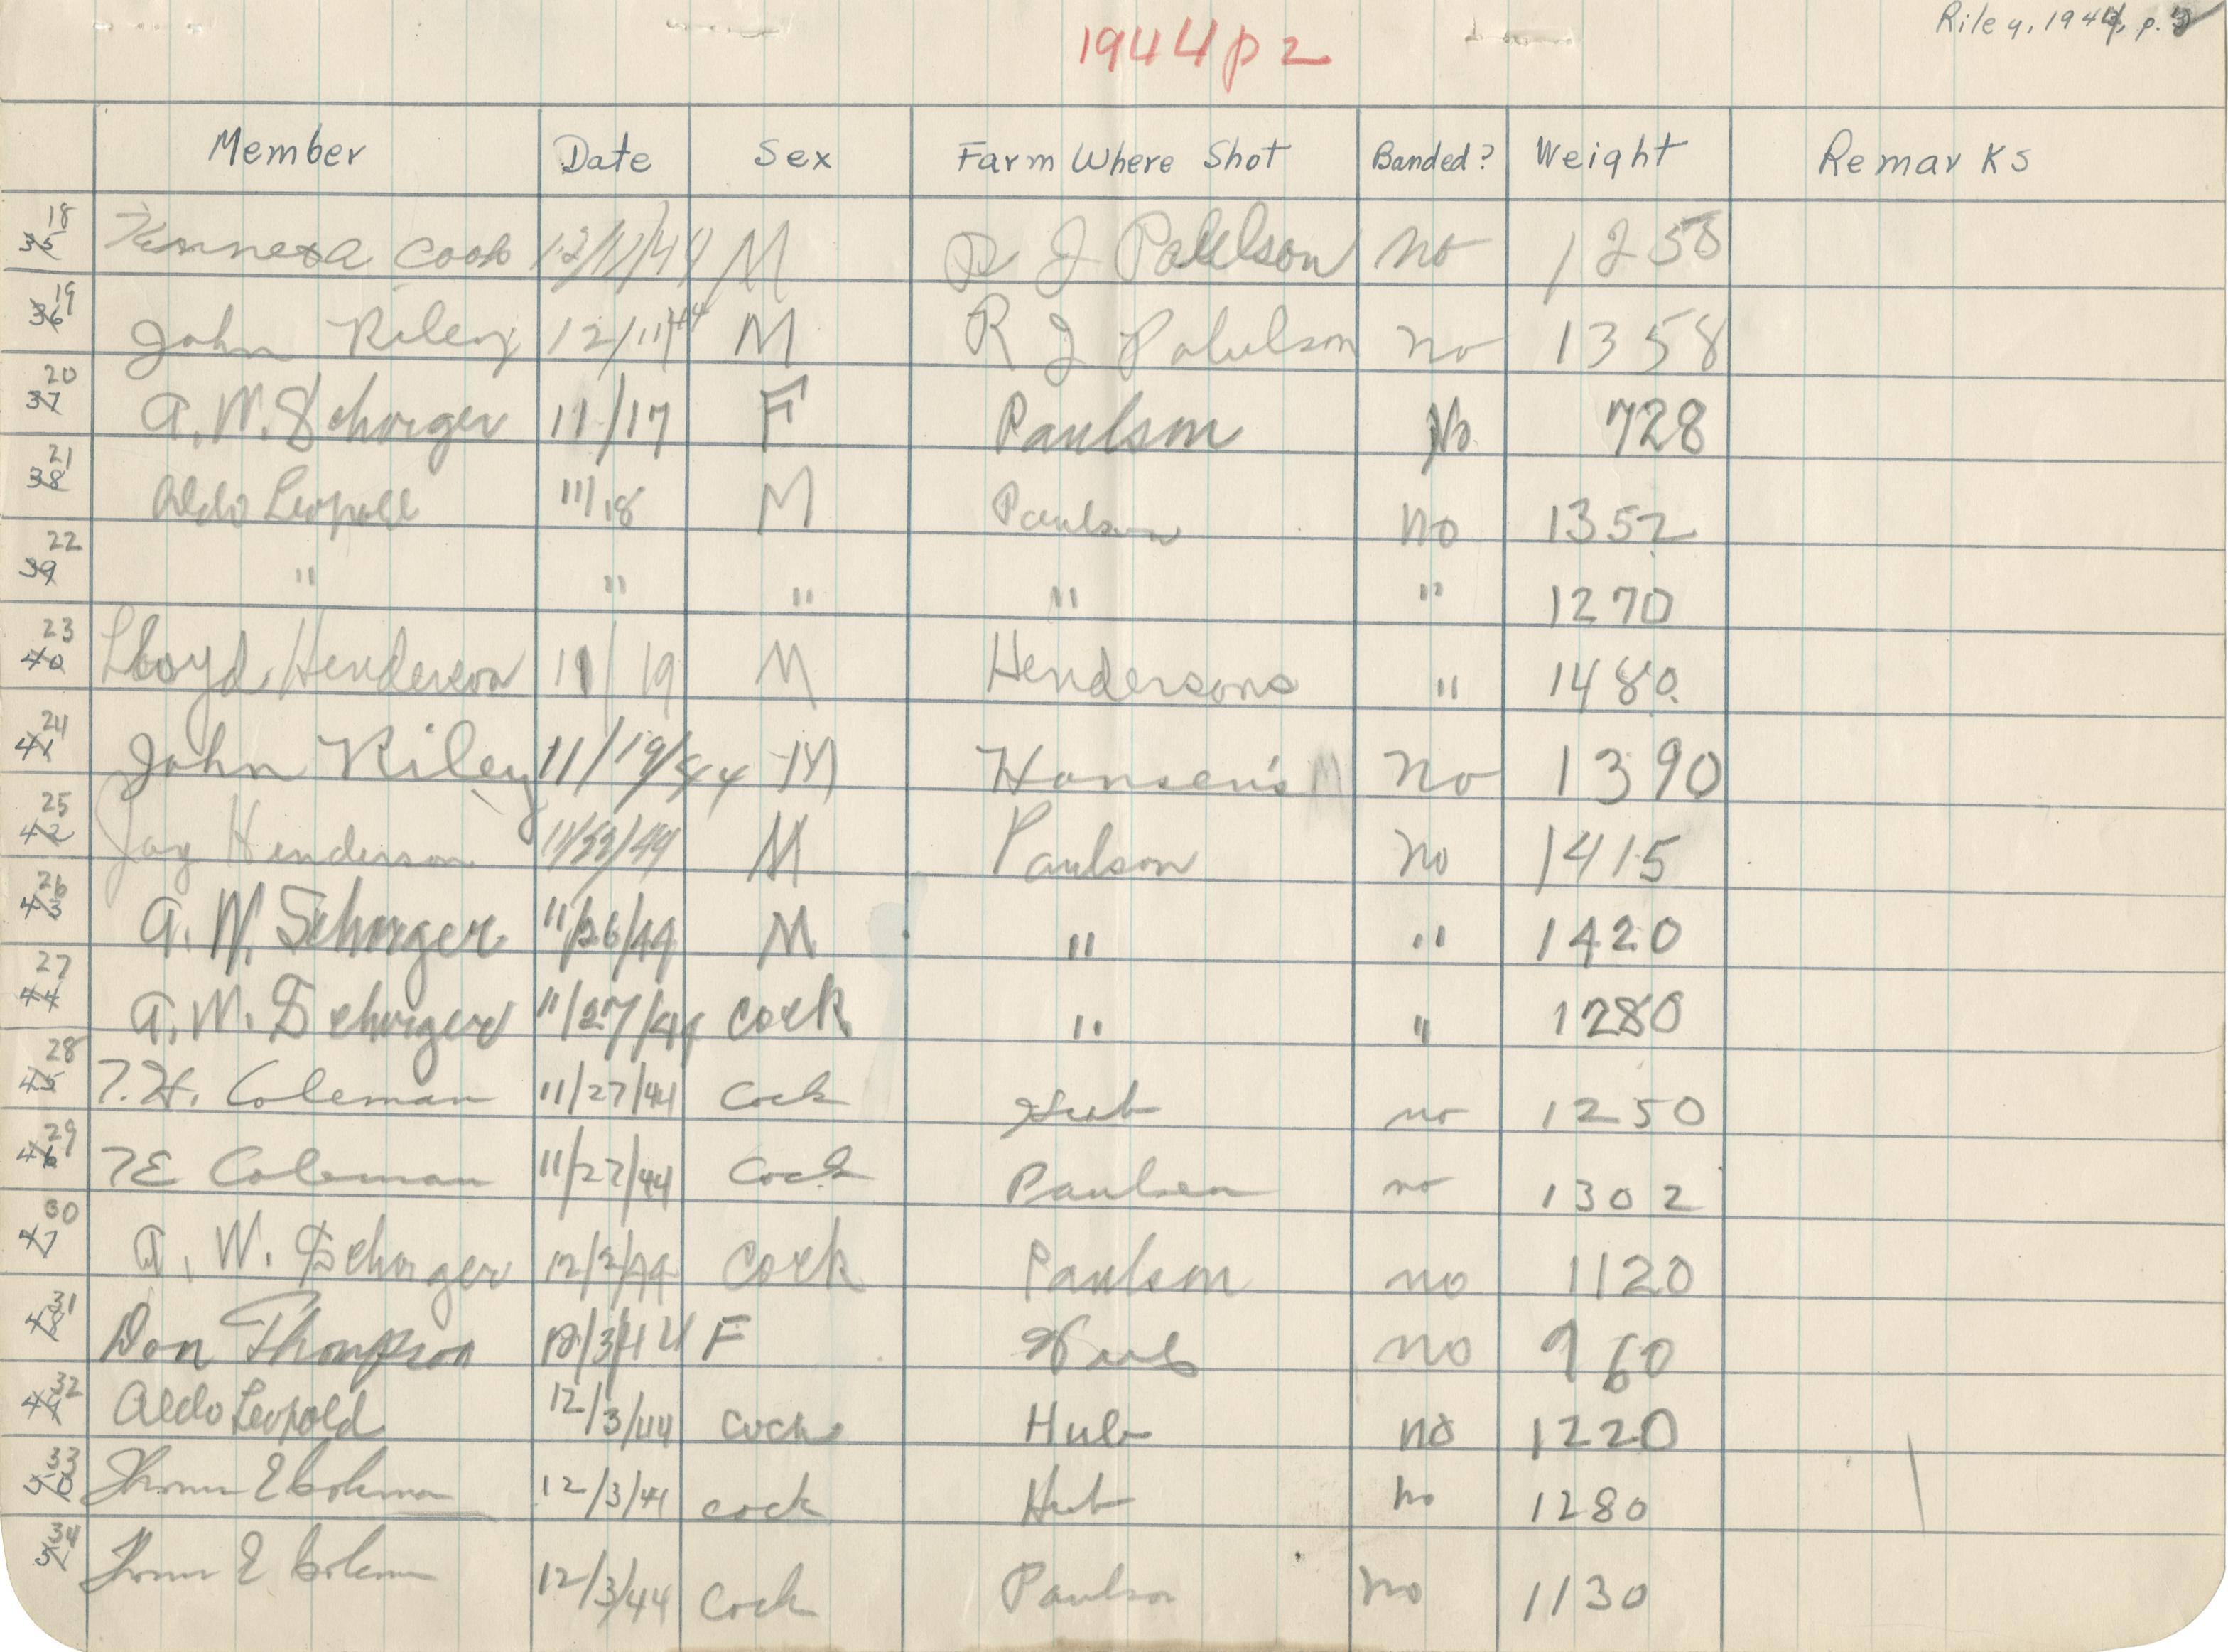 1944 p 2
Riley, 1944, p.
Member Date Sex Farm Where Shot Banded? Weight Remarks
18 35 Cook M R J Paulson no 1258
19 36 John Riley 12/11/44 M R J Paulson no 1358
20 37 A. W. Schorger 11/17 F Paulson No 728
21 38 Aldo Leopold 11/18 M Paulson no 1352
22 39 " " " " " 1270
23 40 Lloyd Henderson 11/19 M Hendersons " 1480
24 41 John Riley 11/19/44 M Hansen's no 1390
25 42 Jay Henderson 11/22/44 M Paulson no 1415
26 43 A. W. Schorger 11/26/44 M " " 1420
27 44 A. W. Schorger 11/27/44 cock " " 1280
28 45 T. H. Coleman 11/27/44 cock Hub no 1250
29 46 TE Coleman 11/27/44 cock Paulsen no 1302
30 47 A. W. Schorger 12/2/44 cock Paulson no 1120
31 48 Don Thompson 12/3/44 F no 960
32 49 Aldo Leopold 12/3/44 cock Hub no 1220
33 50 Thomas E Coleman 12/3/44 cock Hub no 1280
34 51 Thomas E Coleman 12/3/44 cock Paulson no 1130